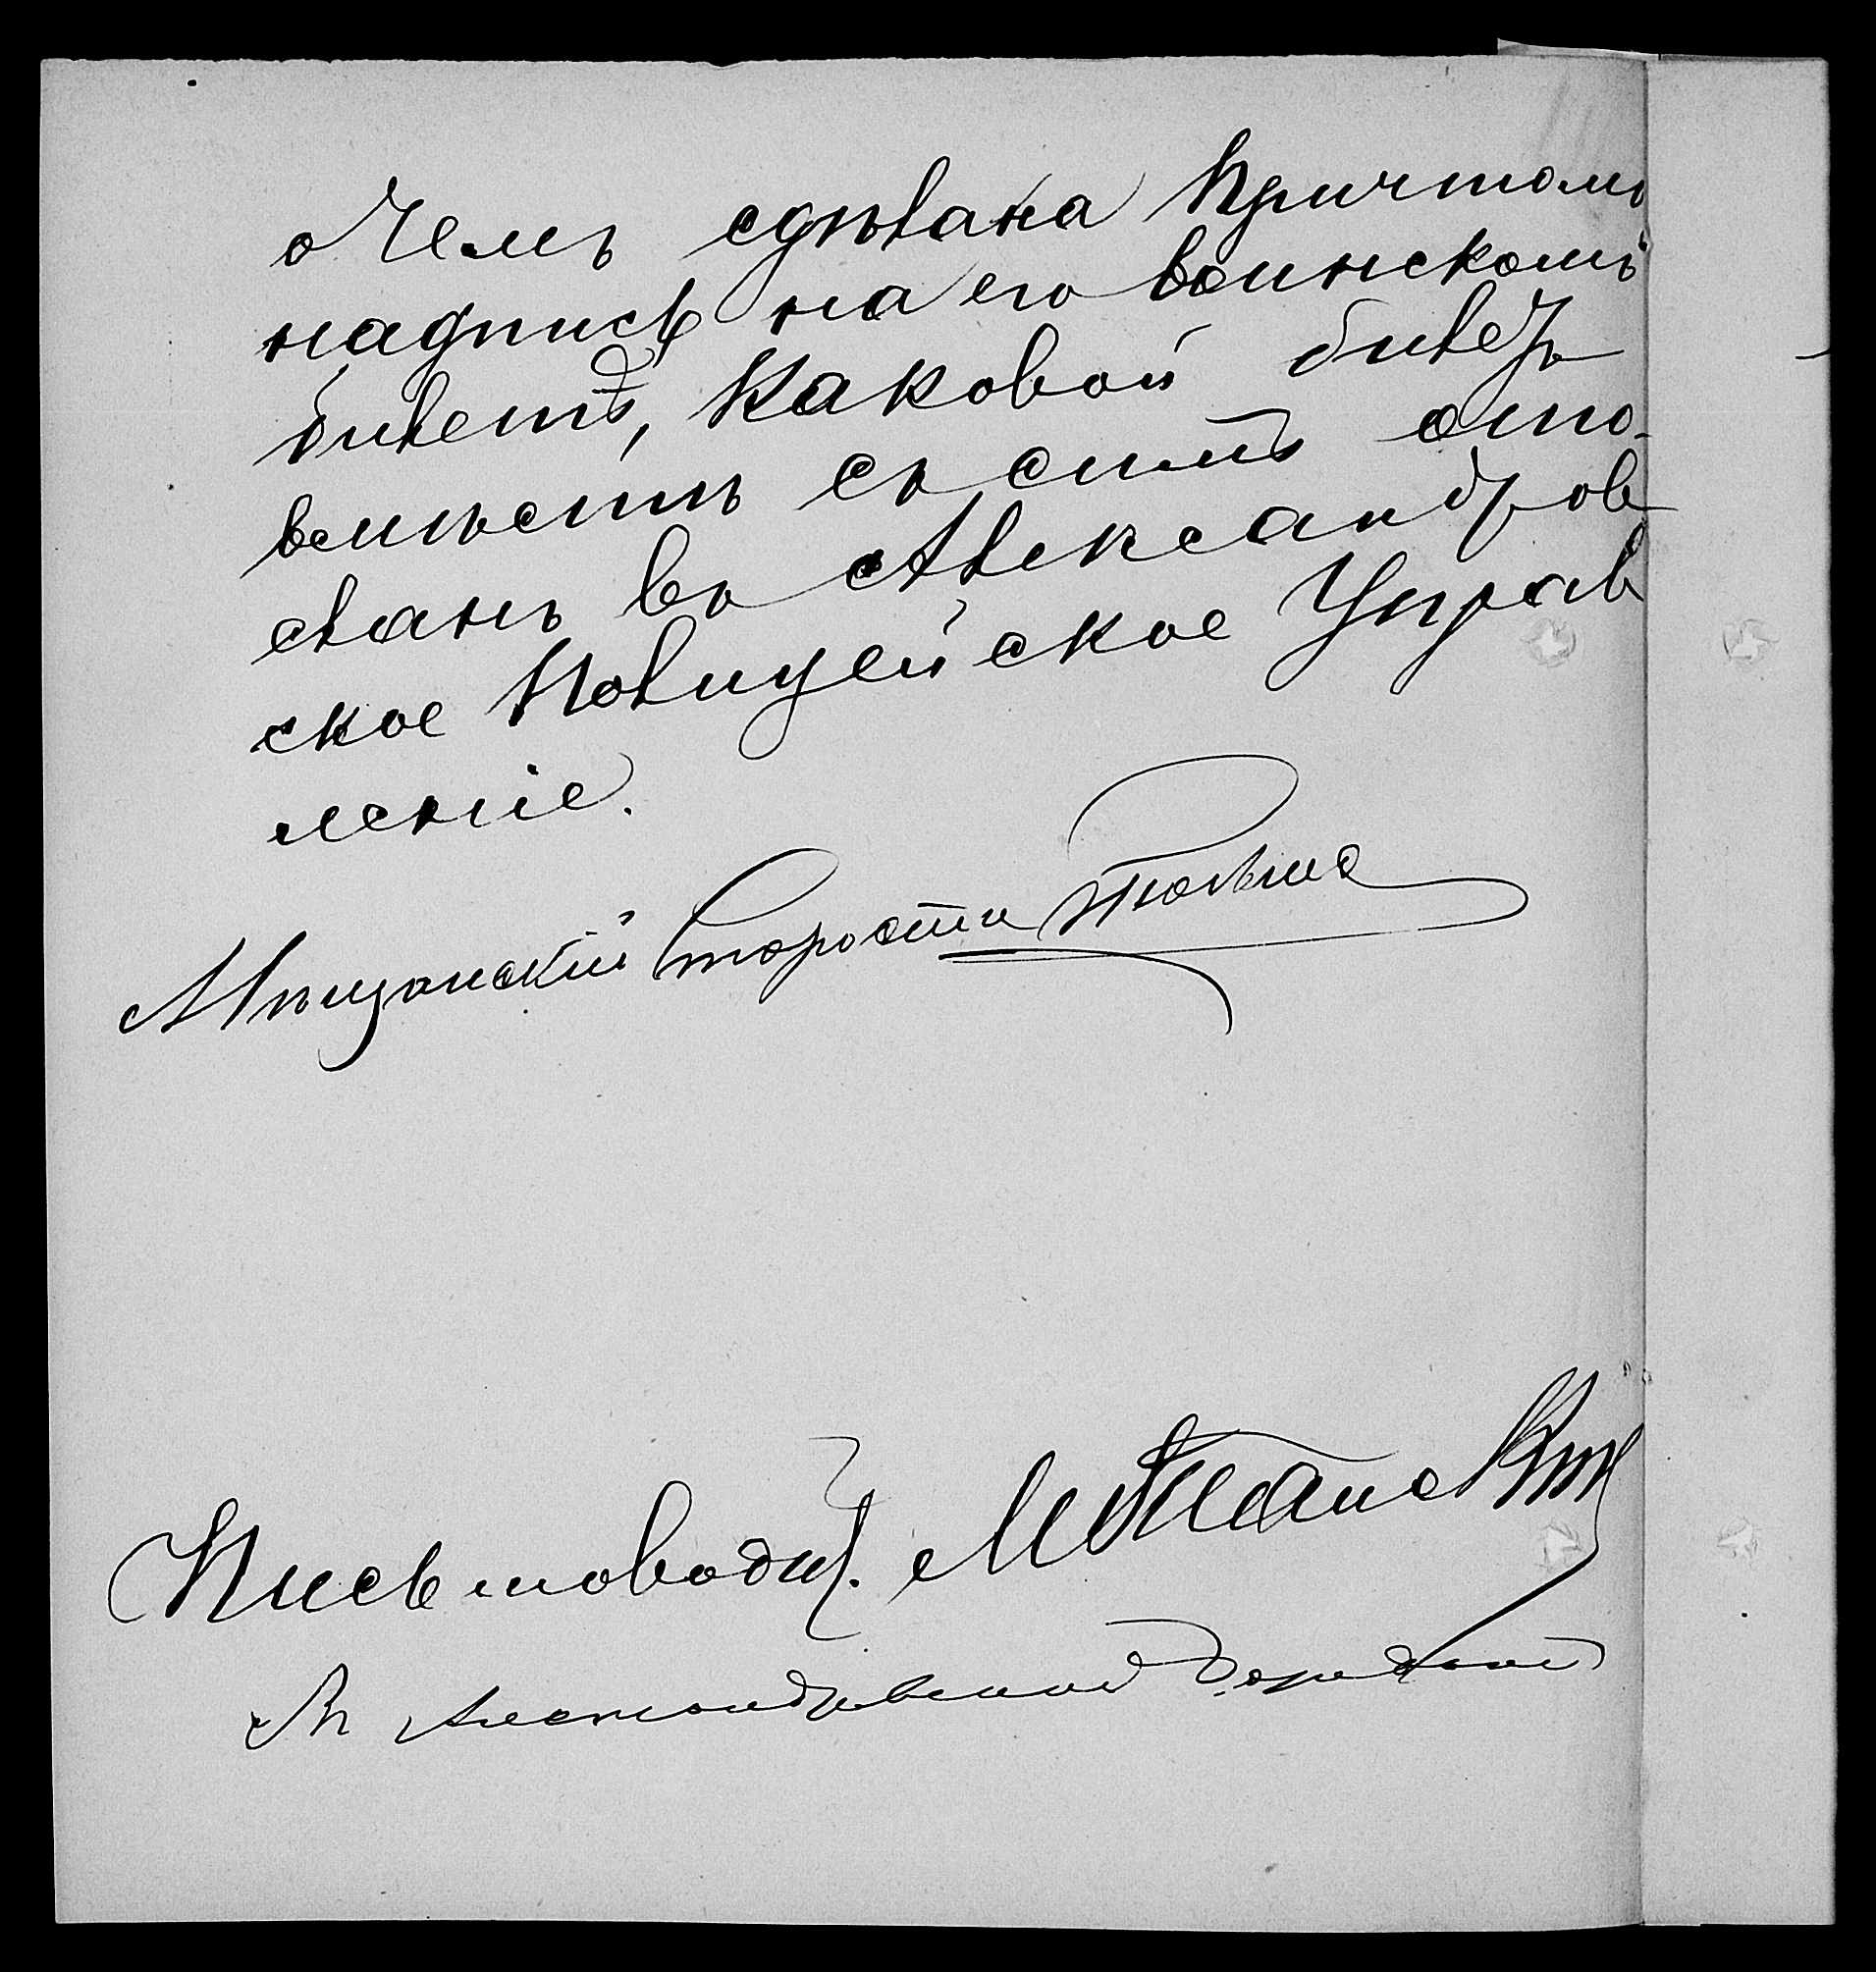 о чемъ сдѣлана Причтомъ
надпись на его воинскомъ
билетѣ, каковой билетъ
вмѣстѣ съ симъ ото-
сланъ въ Александров
ское Полицейское Управ
леніе.
Мѣщанскій Староста
Письмоводит.